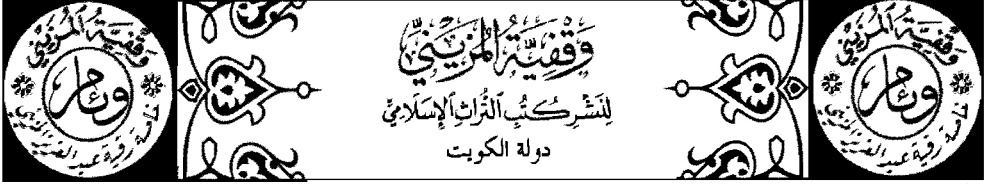 وَقْفِيَّةُ المُزَيْنِيِّ
لِنَشْرِ كُتُبِ التُّرَاثِ الإِسْلَامِيِّ
دولة الكويت
وقفية المزيني
وئام
خاصة رقية عبد
وقفية المزيني
وئام
خاصة رقية عبد